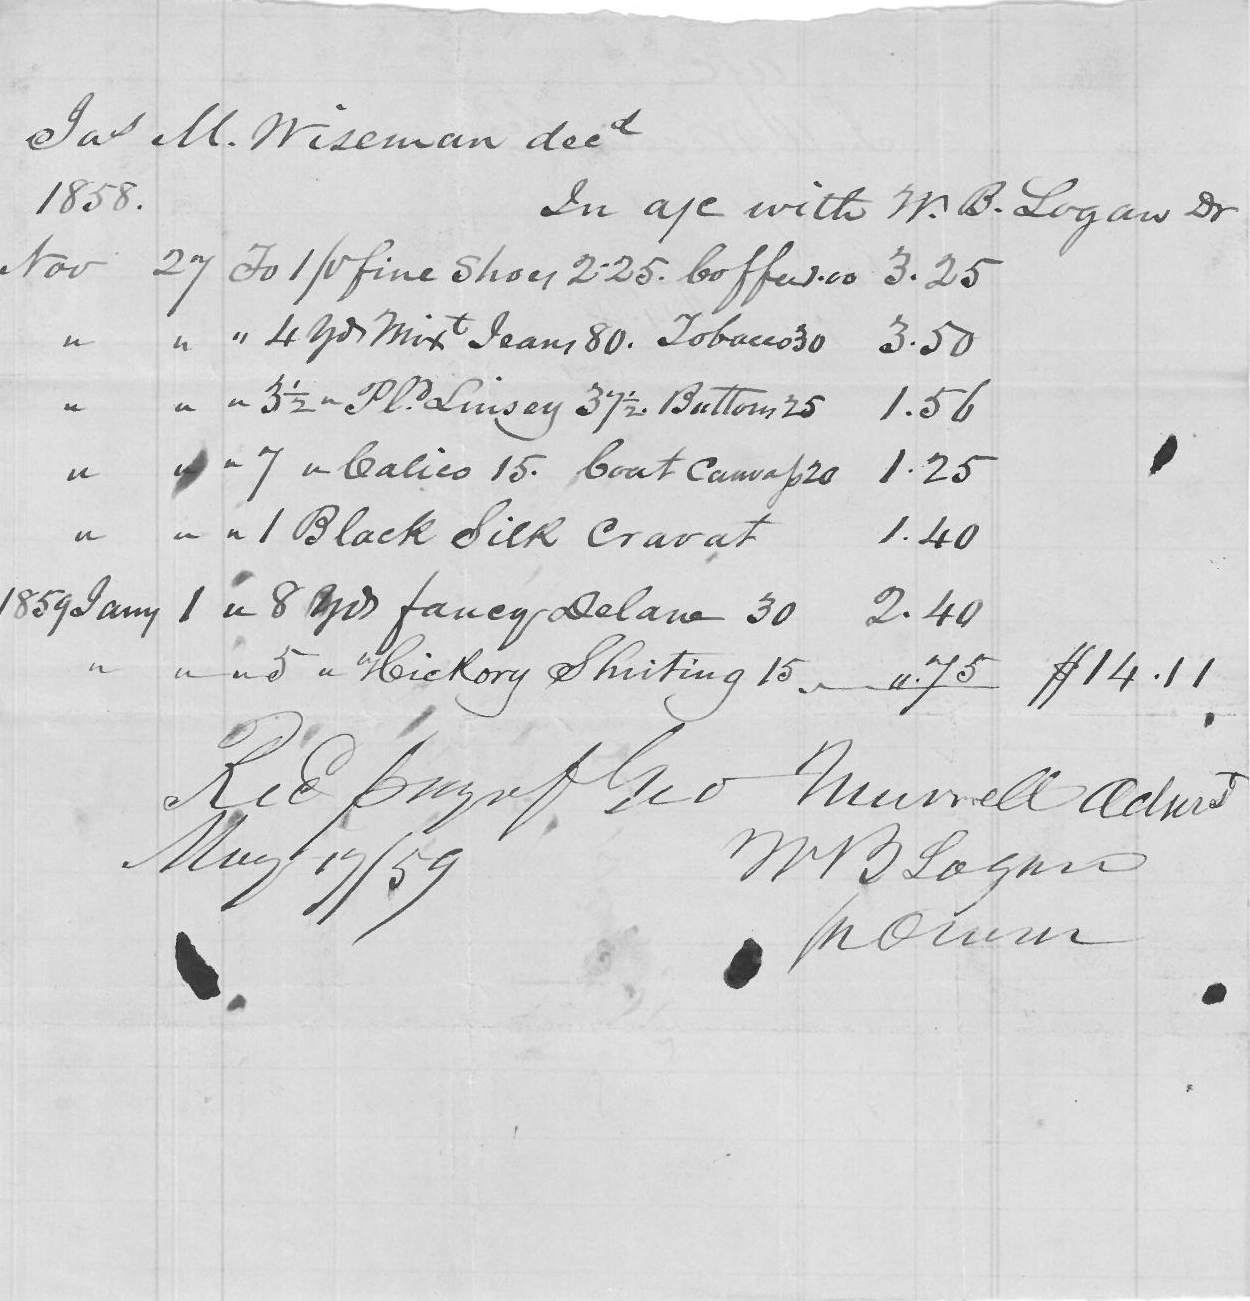 Jas M. Wiseman decd
1858. In a/c with W. B. Logan Dr
Nov 27 To 1 pr fine Shoes 2.25. Coffee 1.00 3.25
" " " 4 yds Mixt Jeans 80. Tobacco 30 3.50
" " " 3½ " Pld Linsey 37½. Buttons 25 1.56
" " " 7 " Calico 15. Coat Canvass 20 1.25
" " " 1 Black Silk Cravat 1.40
1859 Jany 1 " 8 yds fancy Delane 30 2.40
" " " 5 " Hickory Shirting 15 ".75 $14.11
Recd payt of Geo Murrell Admr
May 17/59 W B Logan